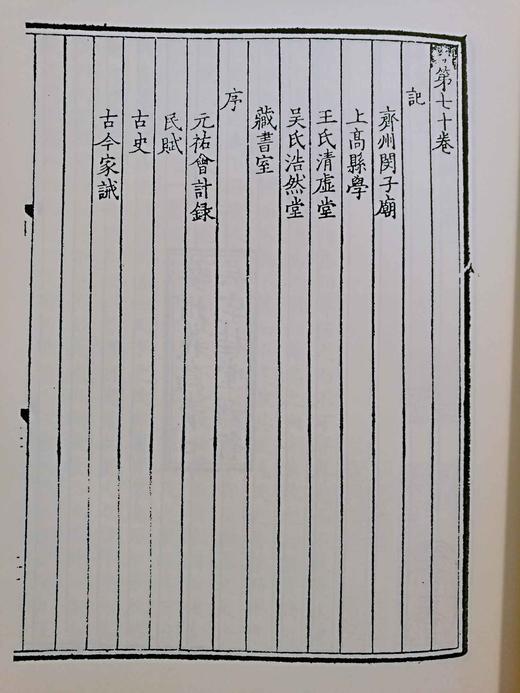 第七十卷
記
齊州閔子廟
上高縣學
王氏清虛堂
吴氏浩然堂
藏書室
序
元祐會計録
民賦
古史
古今家誡